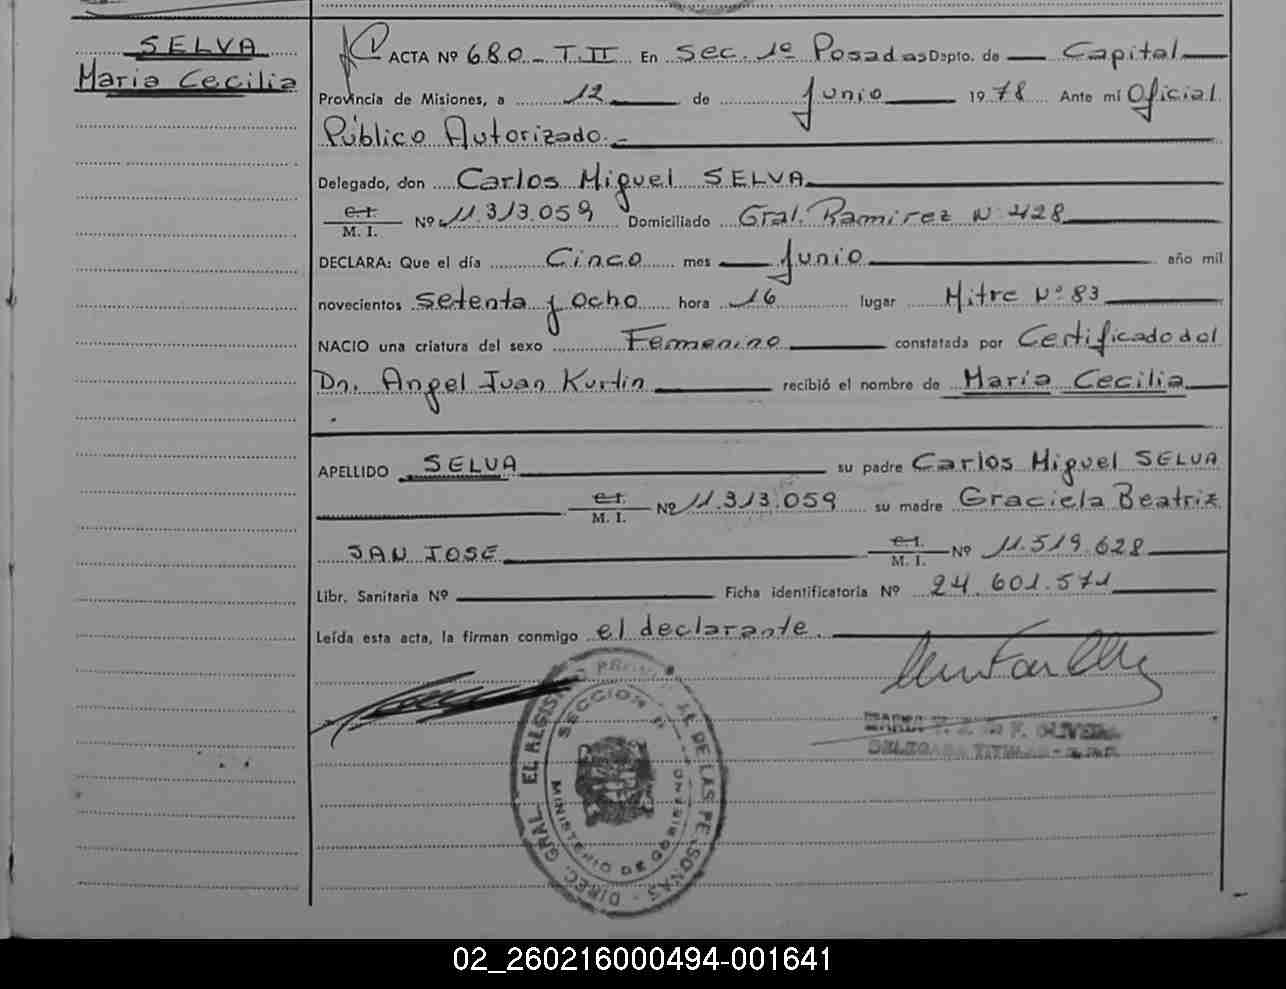 SELVA
Maria Cecilia
ACTA Nº 680 - T.II En Sec. 1º Posadas Dpto. de Capital
Provincia de Misiones, a 12 de Junio 1978 Ante mí Oficial
Público Autorizado.-
Delegado, don Carlos Miguel SELVA
C.I. M. I. Nº 11.313.059 Domiciliado Gral. Ramirez Nº 428
DECLARA: Que el día Cinco mes Junio año mil
novecientos setenta y ocho hora 16 lugar Mitre Nº 83
NACIO una criatura del sexo Femenino constatada por Certificado del
Dr. Angel Juan Kurtin recibió el nombre de Maria Cecilia
APELLIDO SELVA su padre Carlos Miguel SELVA
C.I. M. I. Nº 11.313.059 su madre Graciela Beatriz
SAN JOSE C.I. M. I. Nº 11.519.628
Libr. Sanitaria Nº Ficha identificatoria Nº 24.601.571
Leída esta acta, la firman conmigo el declarante.
DIREC. GRAL. EL REGIST PROVINC DE LAS PERSONAS
SECCION
MINISTERIO DE GOBIERNO
MARIA F. OLIVERA
DELEGADA TITULAR
02_260216000494-001641